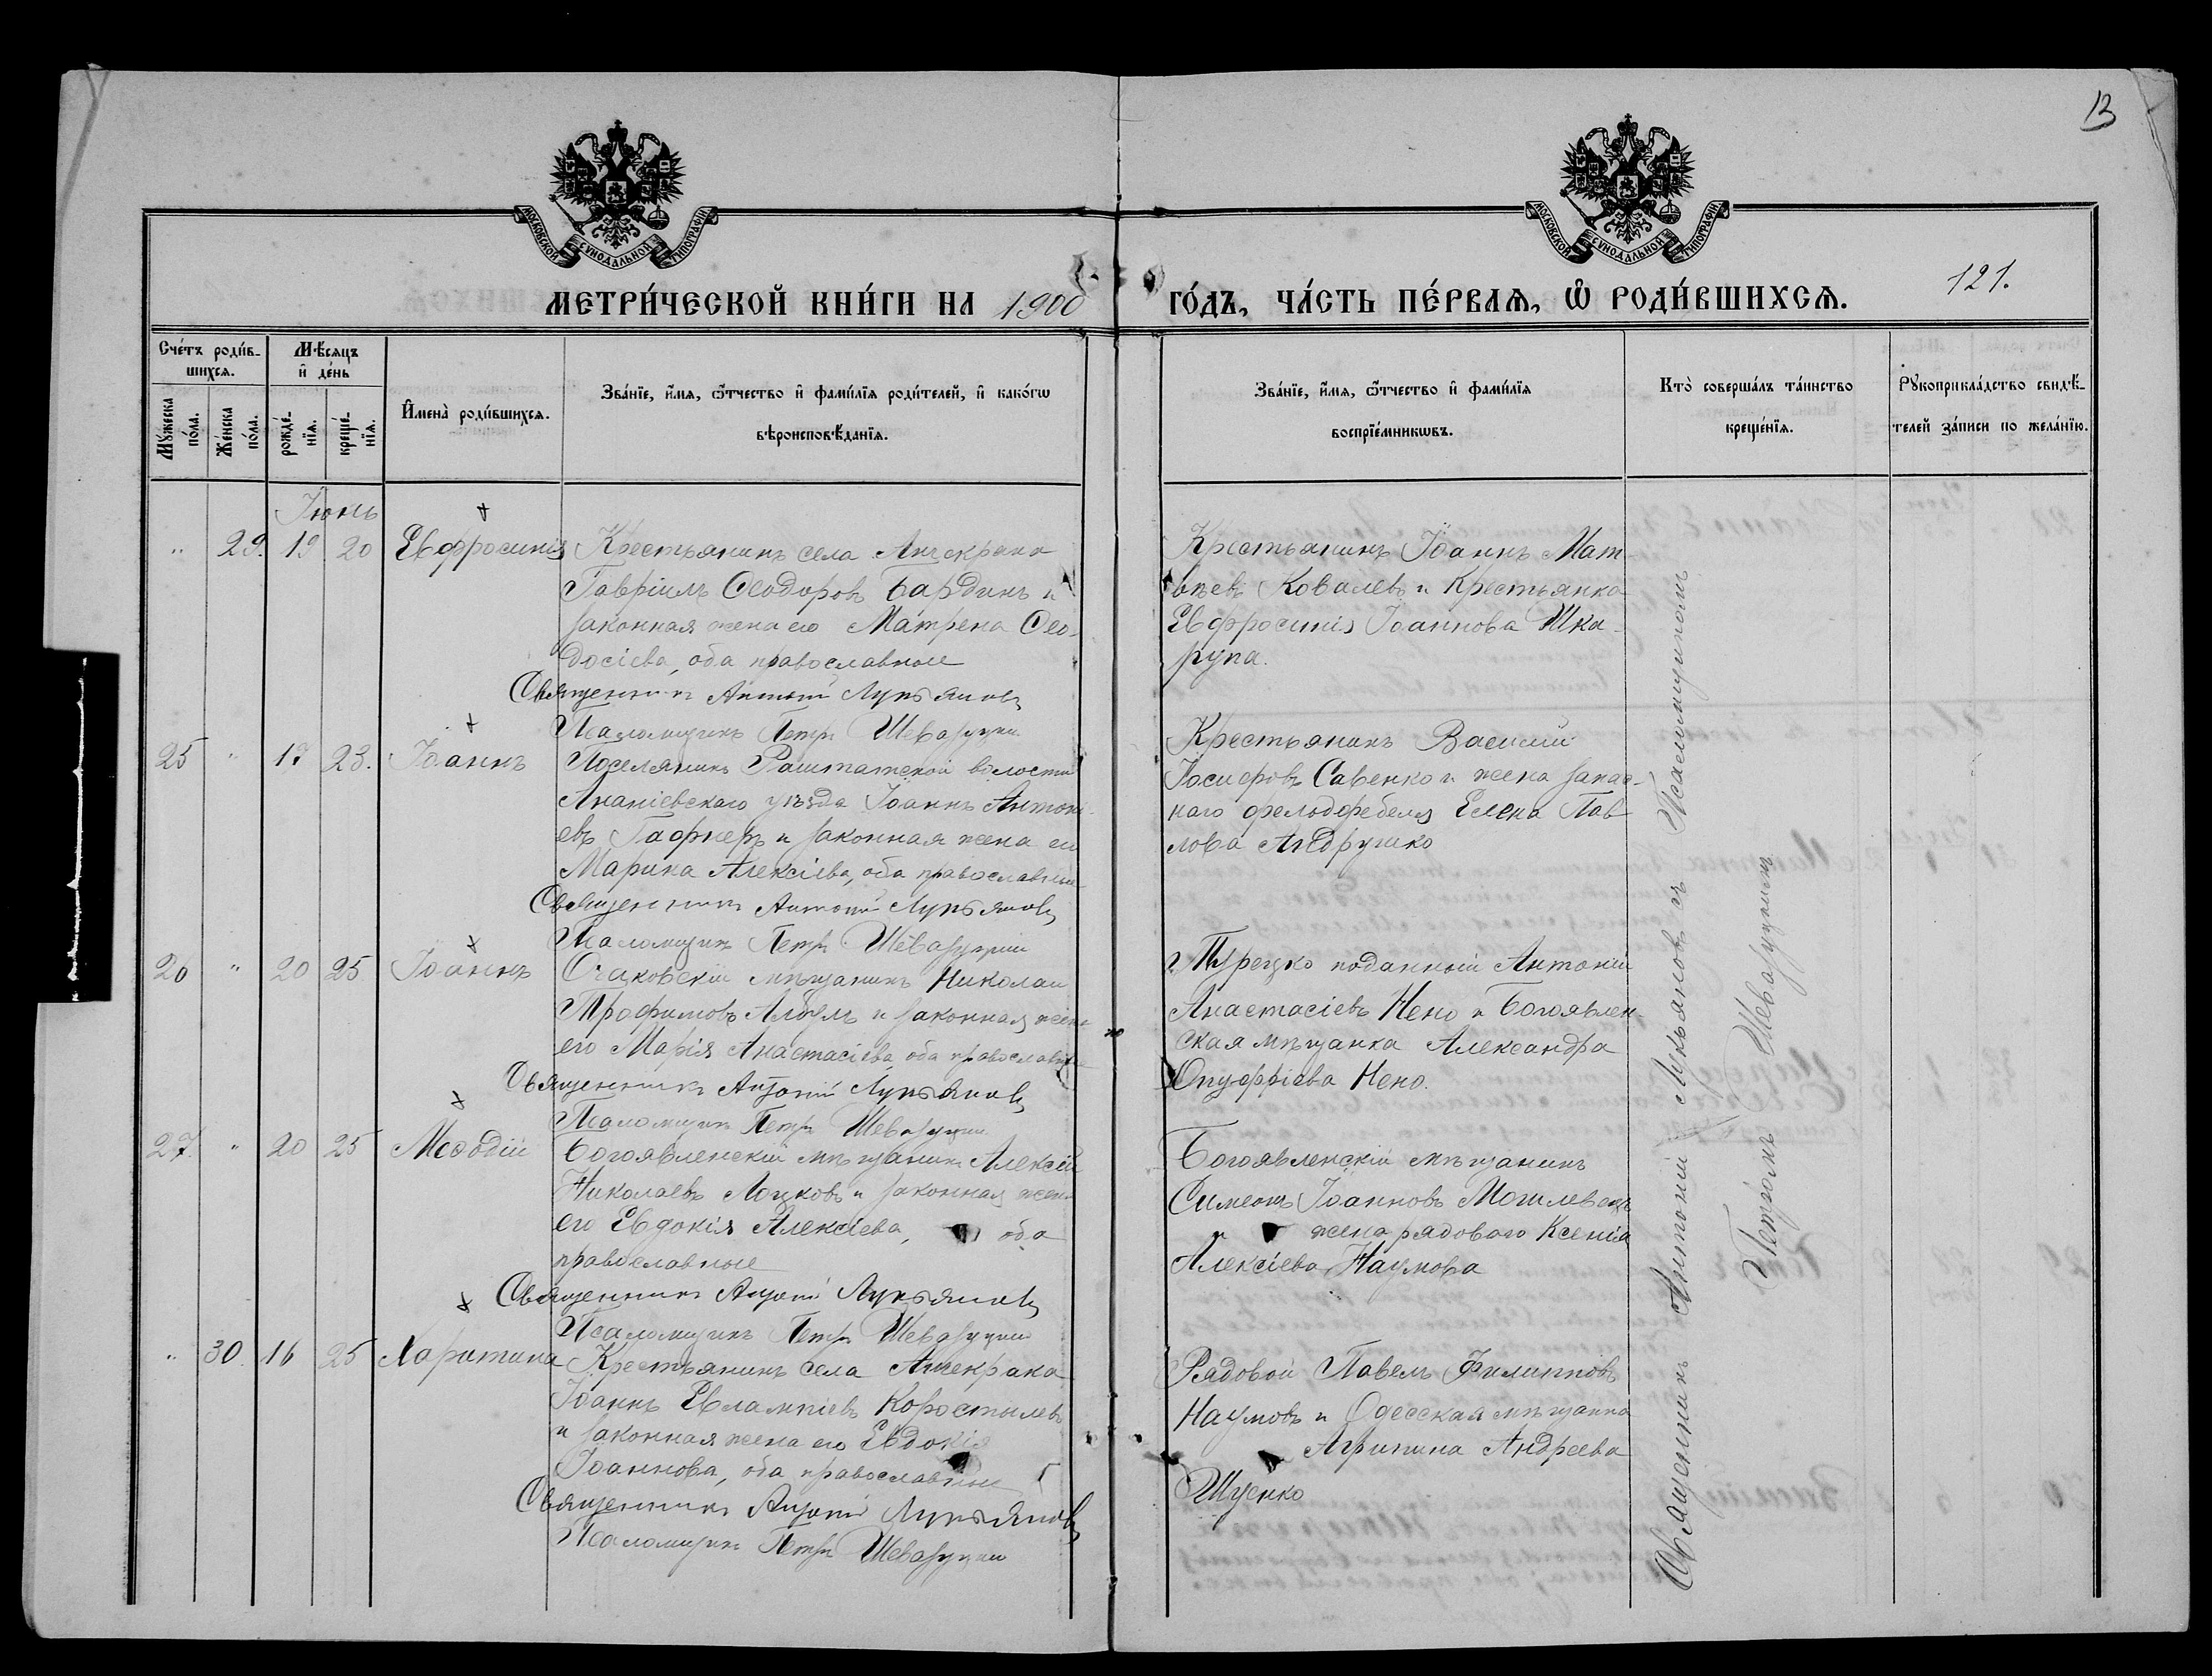 13
МОСКОВСКОЙ СѴНОДАЛЬНОЙ ТИПОГРАФІИ
МОСКОВСКОЙ СѴНОДАЛЬНОЙ ТИПОГРАФІИ
МЕТРИ́ЧЕСКОЙ КНИ́ГИ НА 1900
ГО́ДЪ, ЧА́СТЬ ПЕ́РВАЯ, Ѡ РОДИ́ВШИХСЯ.
121.
Сче́тъ роди́в-
шихся.
Мѣ́сяцъ
и де́нь
Му́жеска
по́ла.
Же́нска
по́ла.
рожде́-
нїя.
креще́-
нїя.
Имена̀ роди́вшихся.
Зва́нїе, и́мя, ѻ́тчество и фами́лїя роди́телей, и како́гѡ
вѣроисповѣ́данїя.
Зва́нїе, и́мя, ѻ́тчество и фами́лїя
воспрїе́мникѡвъ.
Кто̀ соверша́лъ та́инство
креще́нїя.
Рꙋкоприкла́дство свидѣ́-
телей за́писи по жела́нїю.
Іюнь
" 29. 19 20 Евфросинія Крестьянинъ села Анчекрака
Гавріилъ Ѳеодоровъ Бардинъ и
законная жена его Матрена Ѳео-
досіева, оба православные
Священникъ Антоній Лукьяновъ
Псаломщикъ Петръ
Крестьянинъ Іоаннъ Мат-
вѣевъ Ковалевъ и крестьянка
Евфросинія Іоаннова Шка-
рупа.
25 " 17 23. Іоаннъ Поселянинъ Раштатской волости
Ананіевскаго уѣзда Іоаннъ Антоні-
евъ Гафнеръ и законная жена его
Марина Алексіева, оба православные
Священникъ Антоній Лукьяновъ
Псаломщикъ Петръ
Крестьянинъ Василій
Іосифовъ Савенко и жена запас-
наго фельдфебеля Елена Пав-
лова Андрушко
26 " 20 25 Іоаннъ Очаковскій мѣщанинъ Николай
Трофимовъ и законная жена
его Марія Анастасіева, оба православные
Священникъ Антоній Лукьяновъ
Псаломщикъ Петръ
Турецко поданный Антоній
Анастасіевъ Нено и Богоявлен-
ская мѣщанка Александра
Онуфріева Нено.
27. " 20 25 Меѳодій Богоявленскій мѣщанинъ Алексій
Николаевъ Лоцковъ и законная жена
его Евдокія Алексіева, оба
православные
Священникъ Антоній Лукьяновъ
Псаломщикъ Петръ
Богоявленскій мѣщанинъ
Симеонъ Іоанновъ Могилевецъ
и жена рядового Ксенія
Алексіева Наумова
" 30. 16 25 Харитина Крестьянинъ села Анчекрака
Іоаннъ Евлампіевъ Коростылевъ
и законная жена его Евдокія
Іоаннова, оба православные
Священникъ Антоній Лукьяновъ
Псаломщикъ Петръ
Рядовой Павелъ Филипповъ
Наумовъ и Одесская мѣщанка
Агрипина Андреева
Щусенко
Священникъ Антоній Лукьяновъ съ Псаломщикомъ
Петромъ